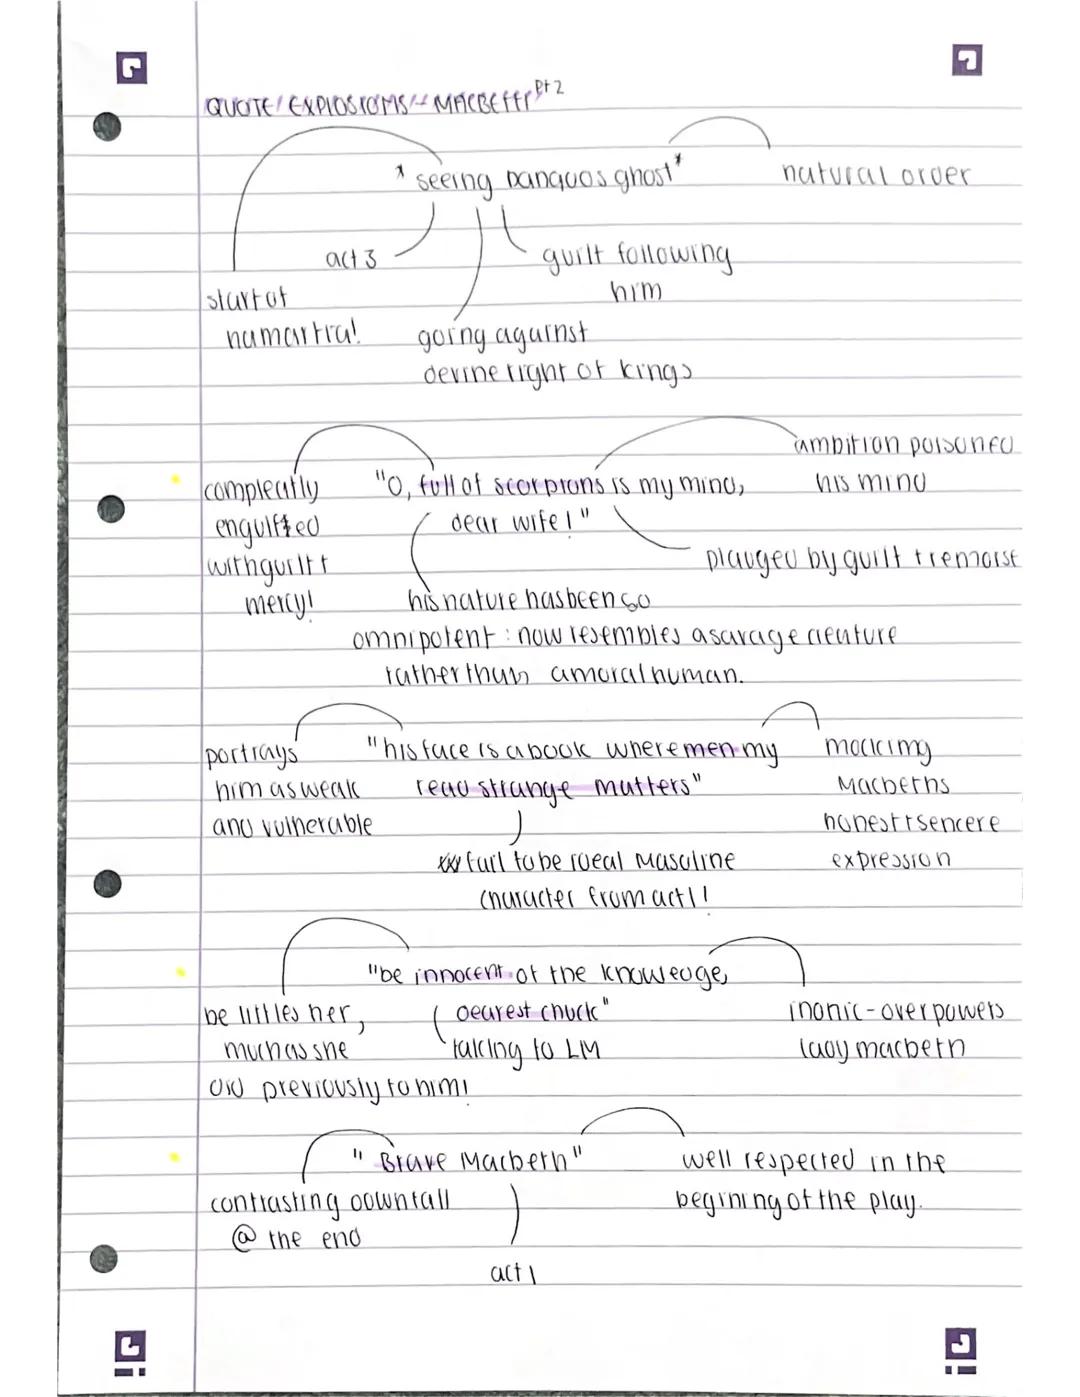 QUOTE EXPLOSIONS - MACBETH pt 2
* seeing banquos ghost *
natural order
act 3
guilt following
him
start of
hamartia!
going against
devine right of kings
ambition poisoned
his mind
compleatly
engulfted
with guilt +
mercy!
"O, full of scorpions is my mind,
dear wife!"
plauged by guilt + remorse
his nature has been so
omnipotent: now resembles a savage creature
rather than a moral human.
portrays
him as weak
and vulnerable
"his face is a book where men my
read strange matters"
mocking
Macbeths
honest + sencere
expression
fail to be ideal masculine
character from act 1!
"be innocent of the knowledge,
dearest chuck"
be littles her,
much as she
did previously to him!
talking to LM
ironic - overpowers
lady macbeth
"Brave Macbeth"
contrasting downfall
@ the end
well respected in the
begining of the play.
act 1